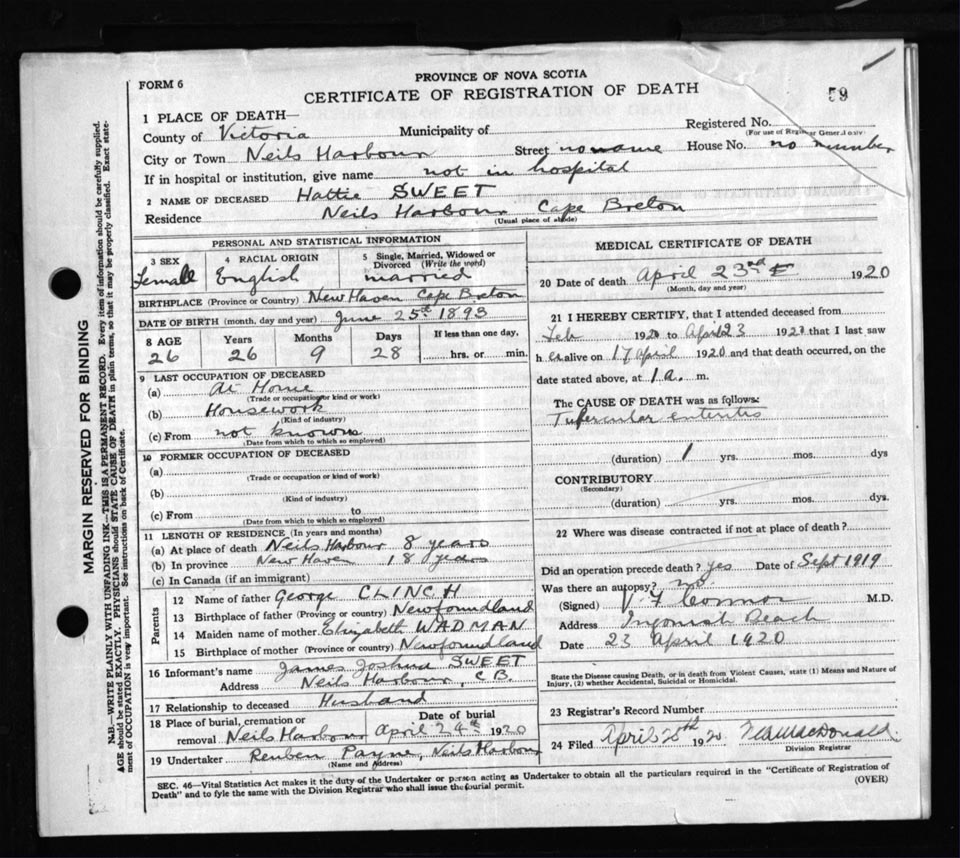 PROVINCE OF NOVA SCOTIA
FORM 6
CERTIFICATE OF REGISTRATION OF DEATH
59
1 PLACE OF DEATH—
County of Victoria Municipality of Registered No.
(For use of Registrar General only)
City or Town Neils Harbour Street no name House No. no number
If in hospital or institution, give name not in hospital
2 NAME OF DECEASED Hattie SWEET
Residence Neils Harbour Cape Breton
(Usual place of abode)
PERSONAL AND STATISTICAL INFORMATION
3 SEX 4 RACIAL ORIGIN 5 Single, Married, Widowed or Divorced (Write the word)
Female English married
BIRTHPLACE (Province or Country) New Haven Cape Breton
DATE OF BIRTH (month, day and year) June 25th 1893
8 AGE Years Months Days If less than one day,
26 26 9 28 hrs. or min.
9 LAST OCCUPATION OF DECEASED
(a) At Home
(Trade or occupation or kind or work)
(b) Housework
(Kind of industry)
(c) From not known
(Date from which to which so employed)
10 FORMER OCCUPATION OF DECEASED
(a)
(Trade or occupation or kind of work)
(b)
(Kind of industry)
(c) From to
(Date from which to which so employed)
11 LENGTH OF RESIDENCE (In years and months)
(a) At place of death Neils Harbour, 8 years
(b) In province New Haven, 18 years
(c) In Canada (if an immigrant)
Parents
12 Name of father George CLINCH
13 Birthplace of father (Province or country) Newfoundland
14 Maiden name of mother Elizabeth WADMAN
15 Birthplace of mother (Province or country) Newfoundland
16 Informant's name James Joshua SWEET
Address Neils Harbour, C.B.
17 Relationship to deceased Husband
18 Place of burial, cremation or removal Neils Harbour Date of burial April 24th 1920
19 Undertaker Reuben Payne, Neils Harbour
(Name and Address)
MEDICAL CERTIFICATE OF DEATH
20 Date of death April 23rd 1920
(Month, day and year)
21 I HEREBY CERTIFY, that I attended deceased from
Feb 1920 to April 23 1920 that I last saw
h er alive on 17 April 1920 and that death occurred, on the
date stated above, at 1 a. m.
The CAUSE OF DEATH was as follows:
Tubercular enteritis
(duration) 1 yrs. mos. dys
CONTRIBUTORY
(Secondary)
(duration) yrs. mos. dys.
22 Where was disease contracted if not at place of death?
Did an operation precede death? yes Date of Sept 1919
Was there an autopsy? no
(Signed) Connor M.D.
Address Ingonish Beach
Date 23 April 1920
State the Disease causing Death, or in death from Violent Causes, state (1) Means and Nature of
Injury, (2) whether Accidental, Suicidal or Homicidal.
23 Registrar's Record Number
24 Filed April 1920 MacDonald
Division Registrar
SEC. 46—Vital Statistics Act makes it the duty of the Undertaker or person acting as Undertaker to obtain all the particulars required in the "Certificate of Registration of
Death" and to fyle the same with the Division Registrar who shall issue the burial permit.
(OVER)
MARGIN RESERVED FOR BINDING
N.B.—WRITE PLAINLY WITH UNFADING INK—THIS IS A PERMANENT RECORD. Every item of information should be carefully supplied.
AGE should be stated EXACTLY. PHYSICIANS should STATE CAUSE OF DEATH in plain terms, so that it may be properly classified. Exact state-
ment of OCCUPATION is very important. See instructions on back of Certificate.